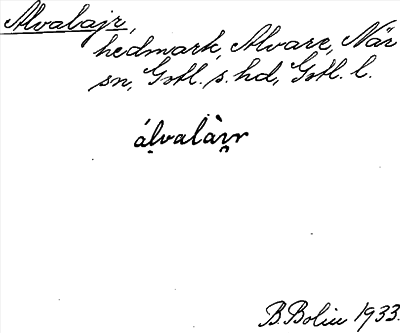 Alvalajr,
hedmark, Alvare, När
sn, Gotl. s. hd, Gotl. l.
áḷvalàı̯r
B. Bolin 1933.